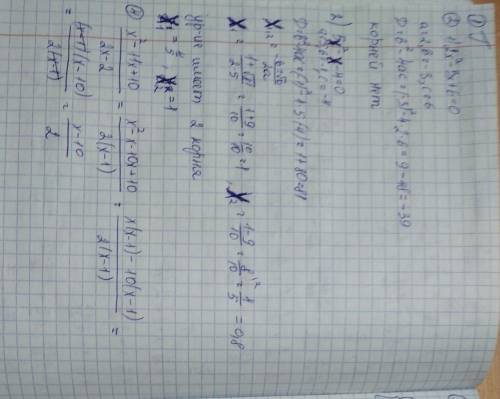 ①
① 1) 2x²-3x+6=0
a=2, b=-3, c=6
D=b²-4ac=(-3)²-4·2·6=9-48=-39
корней нет
2) 5x²-x-4=0
D=b²-4ac=(-1)²-4·5·(-4)=1+80=81
x₁,₂=
x₁= = 1+9/10 = 10/10 = 1, x₂= 1-9/10 = 8/10 = 4/5 = 0,8
ур-ие имеет 2 корня
x₁= 4/5, x₂=1
② x²-11x+10/2x-2 = x²-x-10x+10/2(x-1) = x(x-1)-10(x-1)/2(x-1) =
= (x-1)(x-10)/2(x-1) = x-10/2